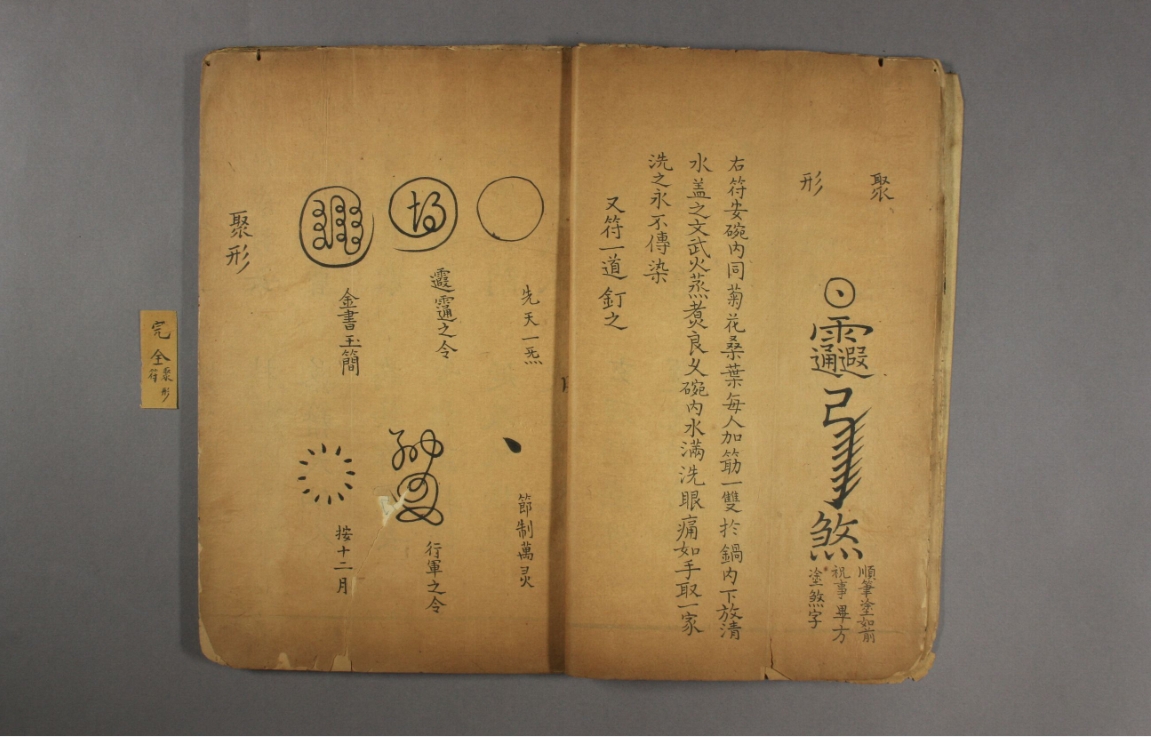 聚
形
順筆塗如前
祝事畢方
塗煞字
煞
右符安碗內同菊花桑葉每人加筯一雙於鍋內下放清
水盖之文武火蒸煑良久碗內水滿洗眼痛如手取一家
洗之永不傳染
又符一道釘之
先天一炁
節制萬灵
霞𮦷之令
行軍之令
金書玉簡
按十二月
聚形
完全
聚形
符